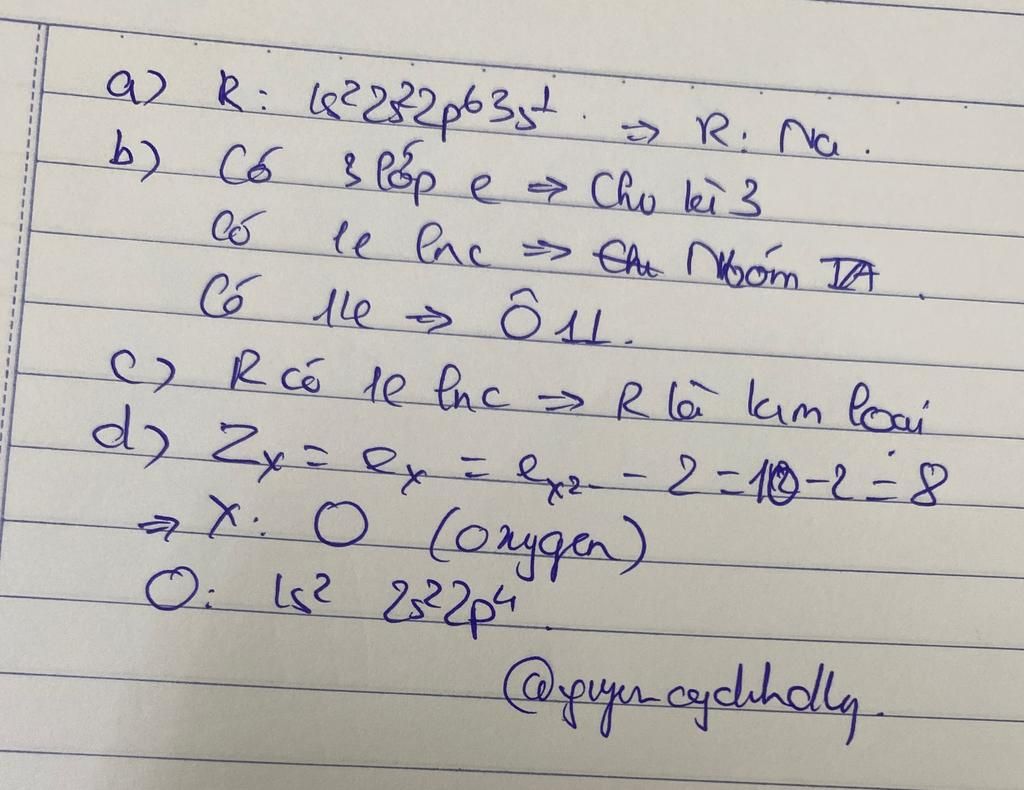 a) R: 1s²2s²2p⁶3s¹. ⇒ R: Na.
b) Có 3 lớp e ⇒ Chu kì 3
Có 1e lnc ⇒ Nhóm IA.
Có 11e ⇒ Ô 11.
c) R có 1e lnc ⇒ R là kim loại
d) Zx = eₓ = eₓ₂₋ - 2 = 10 - 2 = 8
⇒ X: O (oxygen)
O: 1s² 2s²2p⁴.